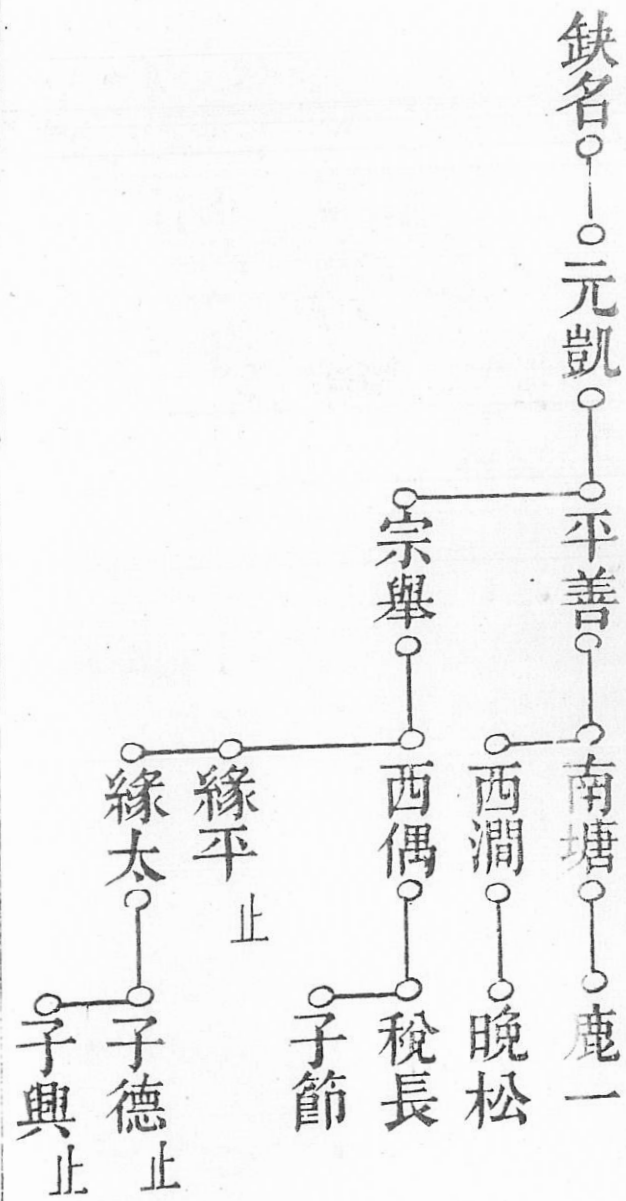 缺名
元凱
平善
宗舉
南塘
西澗
西偶
緣平
止
緣太
鹿一
晚松
稅長
子節
子德
止
子興
止